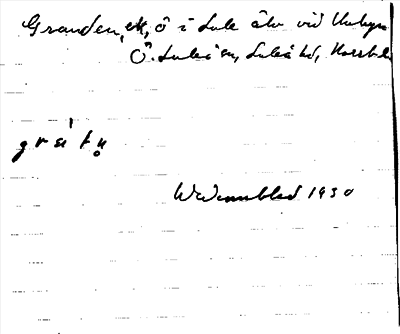 Granden, ö i Lule älv vid Unbyn
Ö. Luleå sn, Luleå hd, Norrb. l.
W Wennblad 1930